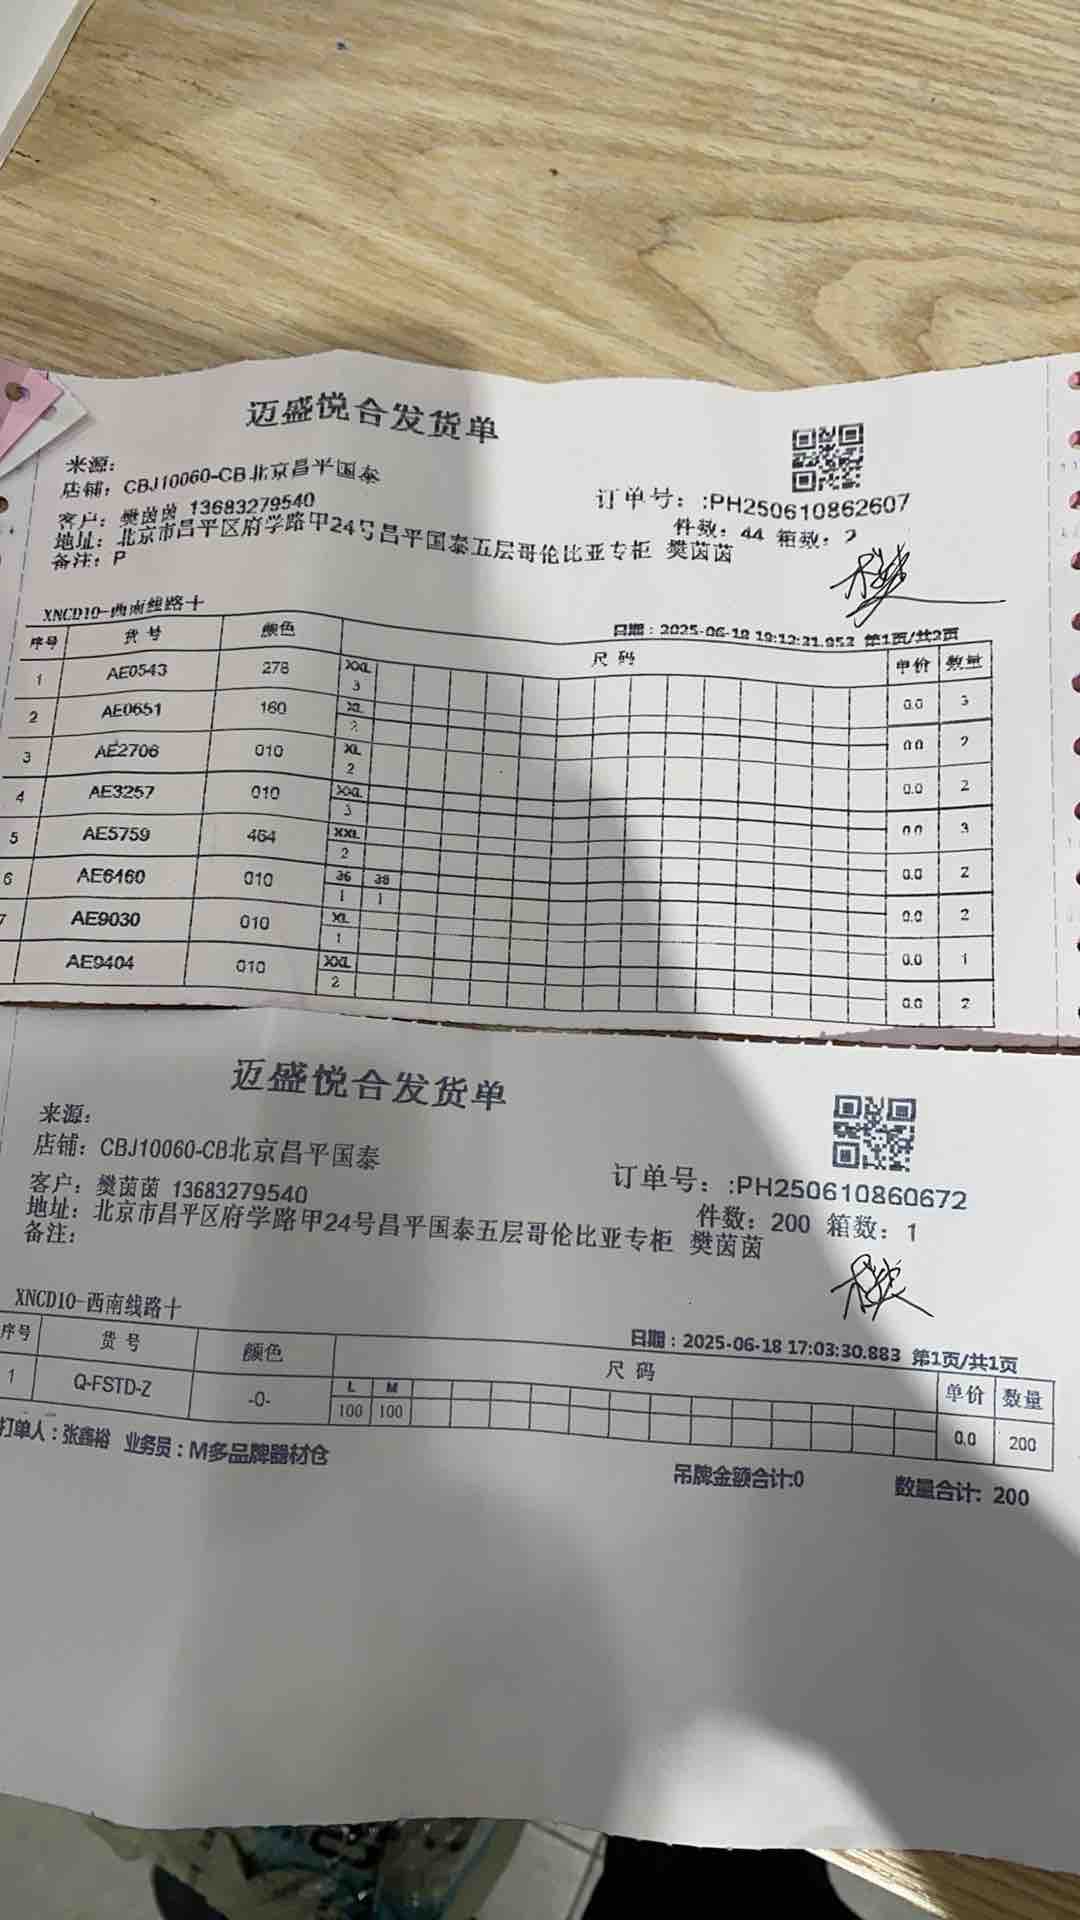 迈盛悦合发货单
来源:
店铺: CBJ10060-CB北京昌平国泰
客户: 樊茵茵 13683279540
订单号: :PH250610862607
地址: 北京市昌平区府学路甲24号昌平国泰五层哥伦比亚专柜 樊茵茵
件数: 44 箱数: 2
备注: P
XNCD10-西南线路十
日期: 2025-06-18 19:12:31.953 第1页/共2页
序号 货号 颜色 尺码 单价 数量
1 AE0543 278 XXL 3 0.0 3
2 AE0651 160 XL 2 0.0 2
3 AE2706 010 XL 2 0.0 2
4 AE3257 010 XXL 3 0.0 3
5 AE5759 464 XXL 2 0.0 2
6 AE6460 010 36 38 1 1 0.0 2
7 AE9030 010 XL 1 0.0 1
AE9404 010 XXL 2 0.0 2
迈盛悦合发货单
来源:
店铺: CBJ10060-CB北京昌平国泰
客户: 樊茵茵 13683279540
订单号: :PH250610860672
地址: 北京市昌平区府学路甲24号昌平国泰五层哥伦比亚专柜 樊茵茵
件数: 200 箱数: 1
备注:
XNCD10-西南线路十
日期: 2025-06-18 17:03:30.883 第1页/共1页
序号 货号 颜色 尺码 单价 数量
1 Q-FSTD-Z -0- L M 100 100 0.0 200
打单人: 张鑫裕 业务员: M多品牌器材仓
吊牌金额合计:0 数量合计: 200